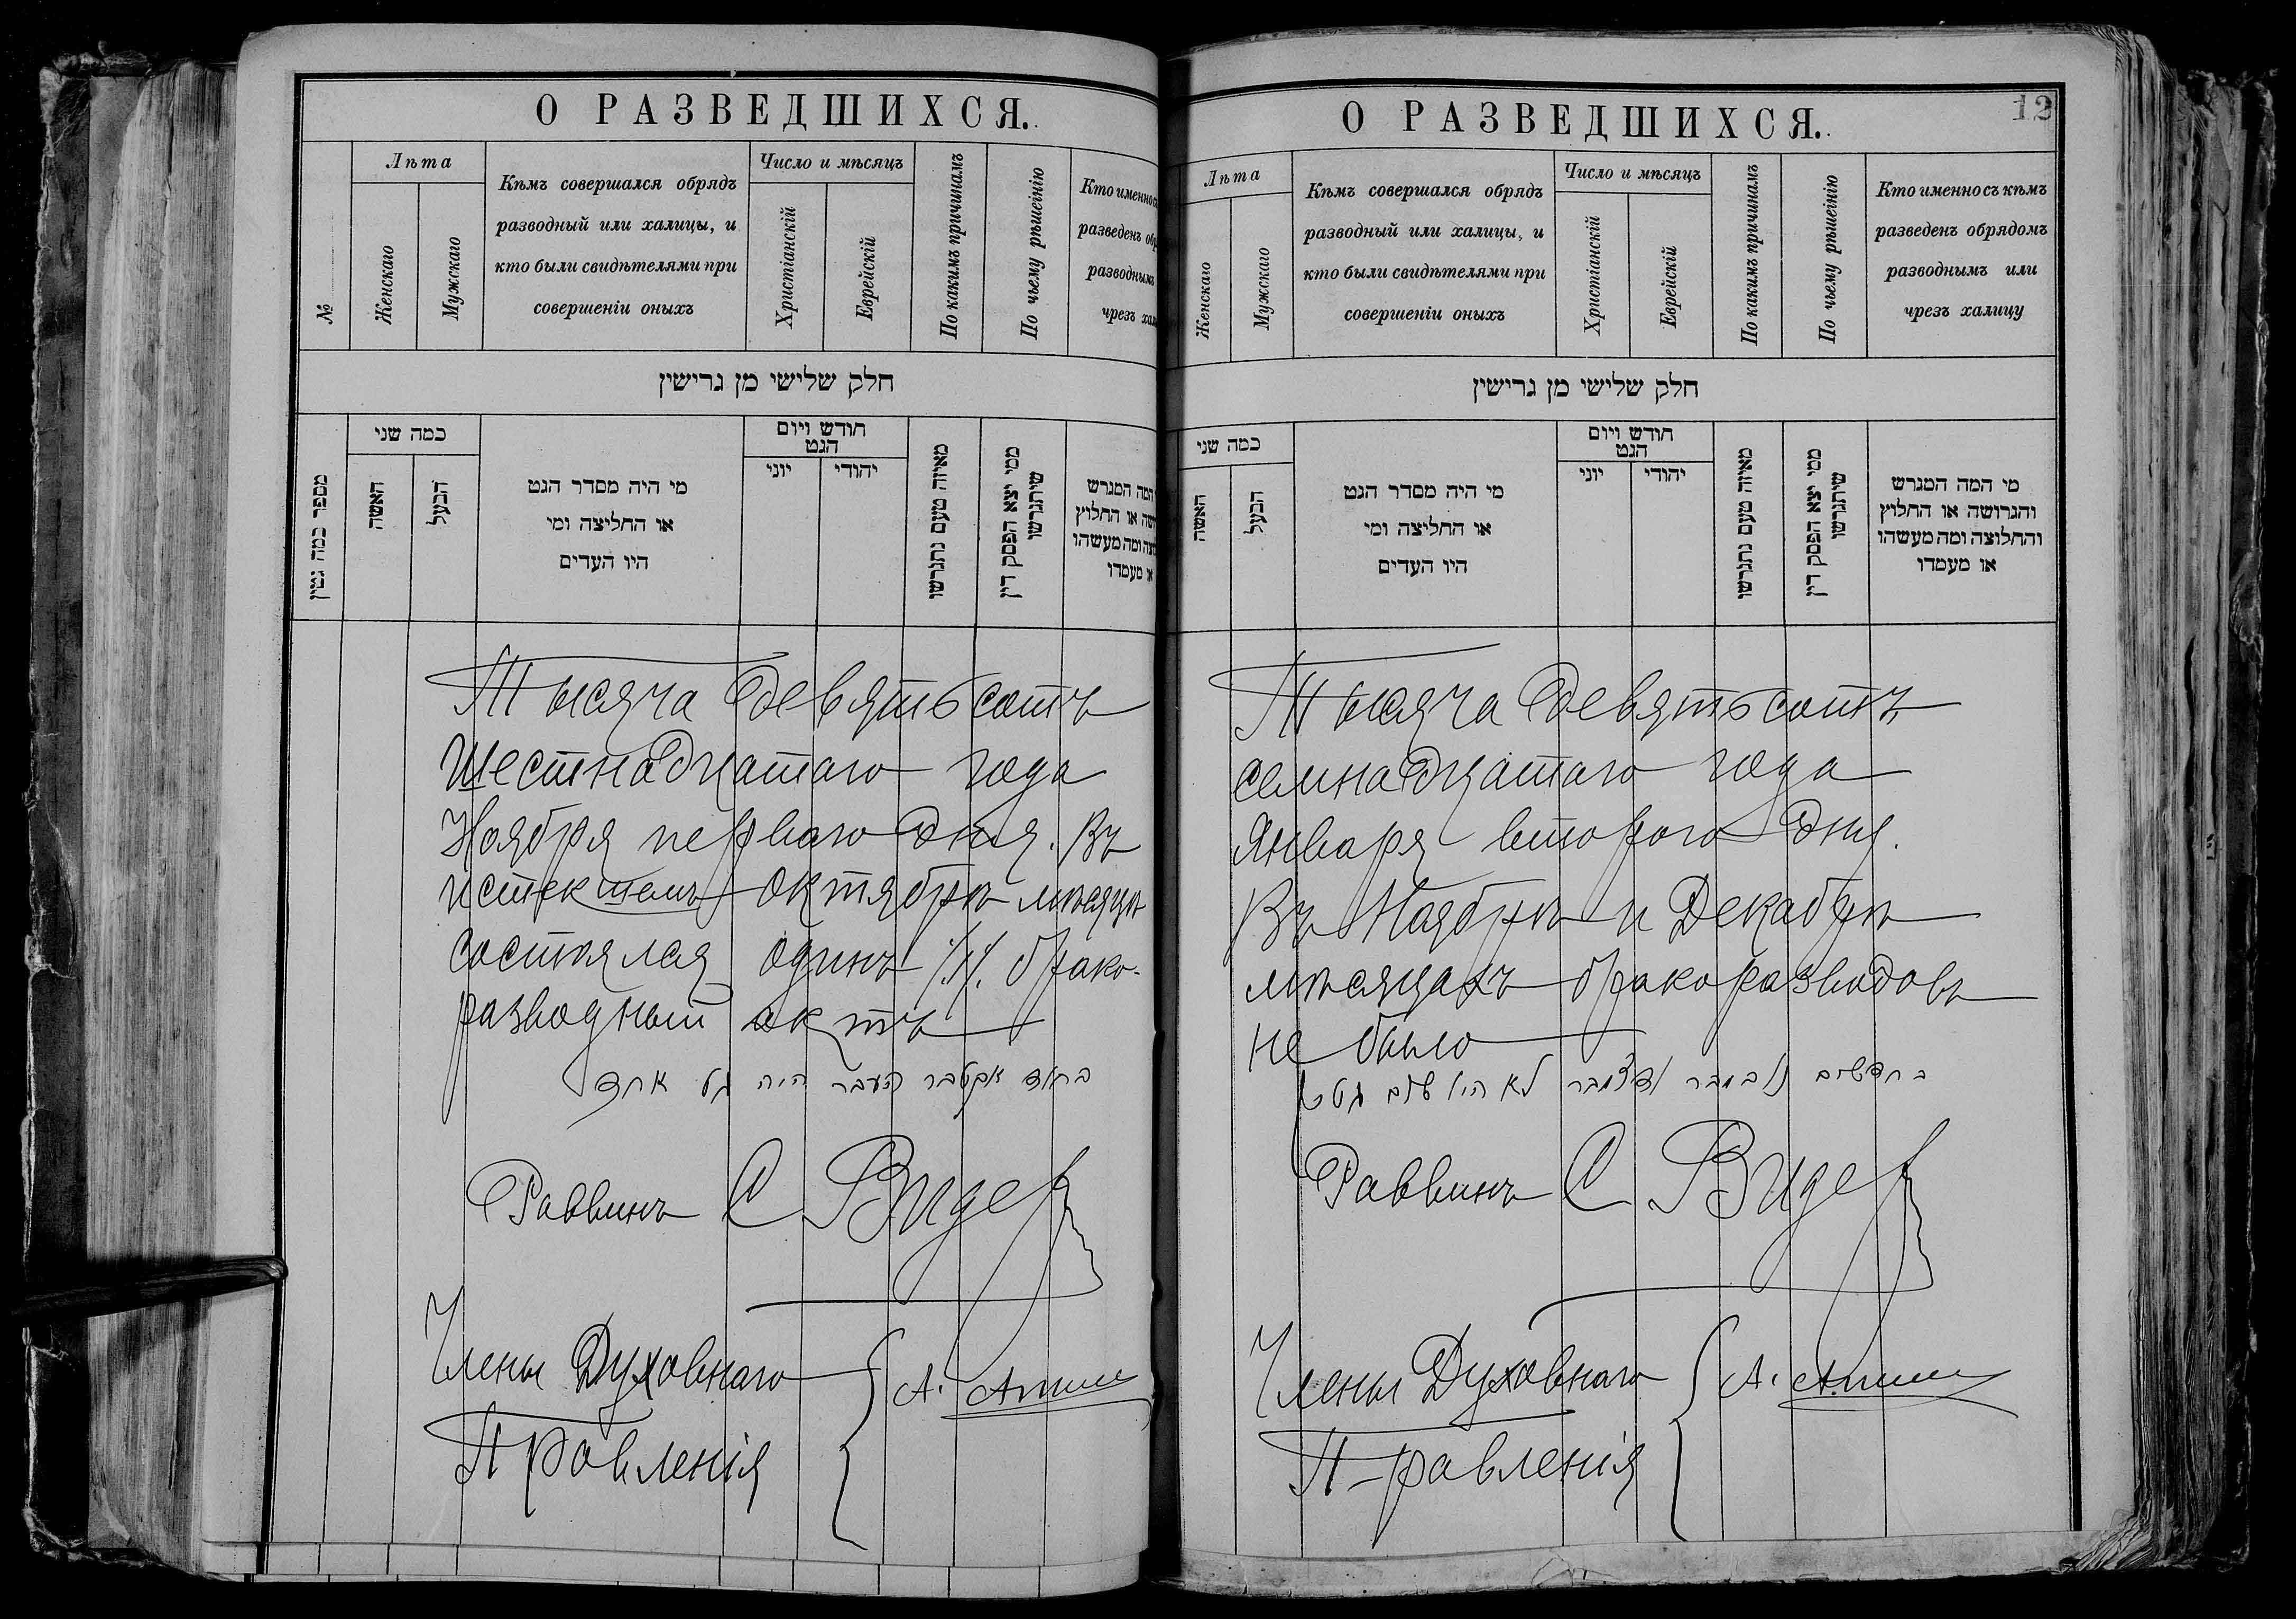 О РАЗВЕДШИХСЯ.
№
Лѣта
Женскаго
Мужскаго
Кѣмъ совершался обрядъ
разводный или халицы, и
кто были свидѣтелями при
совершеніи оныхъ
Число и мѣсяцъ
Христіанскій
Еврейскій
По какимъ причинамъ
По чьему рѣшеінію
Кто именно съ
разведенъ обр
разводнымъ
чрезъ хал
חלק שלישי מן גרישין
מספר כמה גטין
כמה שני
האשה
הבעל
מי היה מסדר הגט
או החליצה ומי
היו העדים
חודש ויום
הגט
יוני
יהודי
מאיזה טעם נתגרשו
ממי יצא הפסק דין
שיתגרשו
המה המגרש
ושה או החלוץ
וצה ומה מעשהו
או מעמדו
Тысяча девятьсотъ
шестнадцатаго года
Ноября перваго дня. Въ
истекшемъ октябрѣ мѣсяцѣ
состоялся одинъ /1/. брако-
разводный актъ
בחוד אקטבר העבר היה גט אחד
Раввинъ С Видер
Члены Духовнаго
Правленія
А.
О РАЗВЕДШИХСЯ.
12
Лѣта
Женскаго
Мужскаго
Кѣмъ совершался обрядъ
разводный или халицы, и
кто были свидѣтелями при
совершеніи оныхъ
Число и мѣсяцъ
Христіанскій
Еврейскій
По какимъ причинамъ
По чьему рѣшеінію
Кто именно съ кѣмъ
разведенъ обрядомъ
разводнымъ или
чрезъ халицу
חלק שלישי מן גרישין
כמה שני
האשה
הבעל
מי היה מסדר הגט
או החליצה ומי
היו העדים
חודש ויום
הגט
יוני
יהודי
מאיזה טעם נתגרשו
ממי יצא הפסק דין
שיתגרשו
מי המה המגרש
והגרושה או החלוץ
והחלוצה ומה מעשהו
או מעמדו
Тысяча девятьсотъ
семнадцатаго года
Января второго дня.
Въ Ноябрѣ и Декабрѣ
мѣсяцахъ бракоразводовъ
не было
בחדשים נובמבר ודצמבר לא היו שום גטין
Раввинъ С Видер
Члены Духовнаго
Правленія
А.